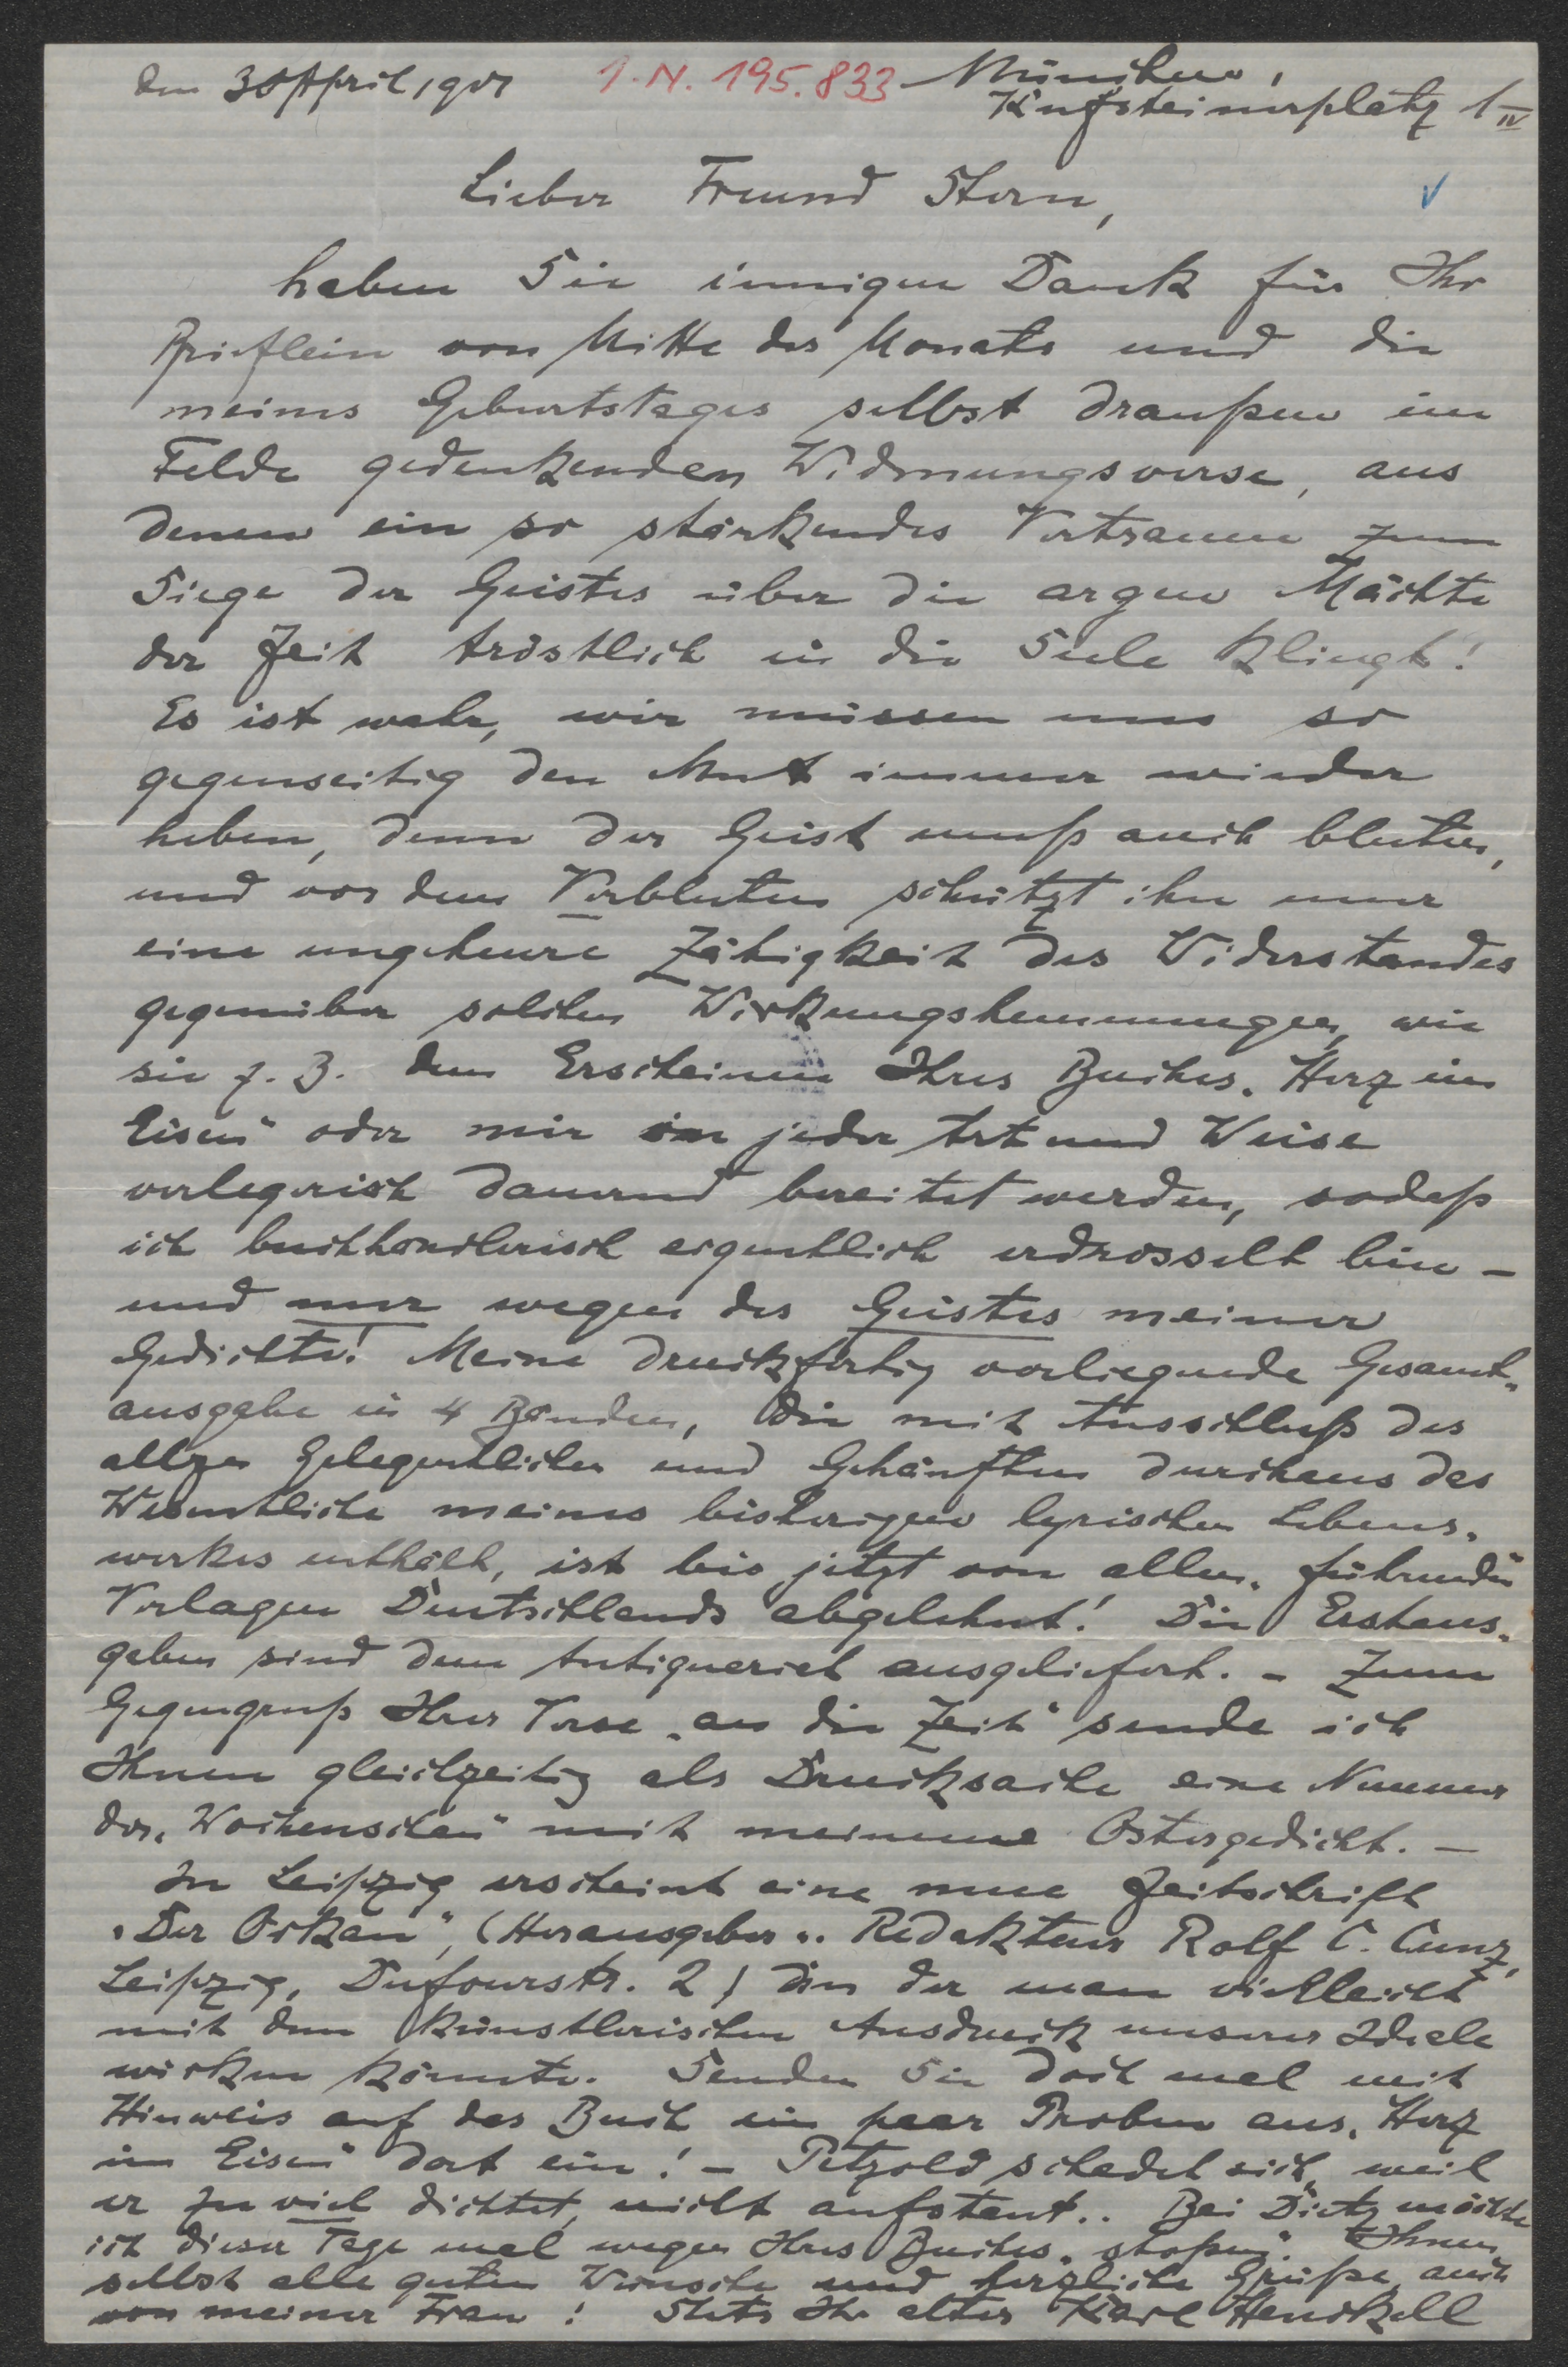 den 30 April 19
I.N. 195.833
München,
Kufsteinerplatz 1 IV
Lieber Freund Stern,
haben Sie innigen Dank für Ihr
Brieflein von Mitte des Monats und die
meines Geburtstages selbst draußen im
Felde gedenkenden Widmungsverse, aus
denen ein so stärkendes Vertrauen zum
Siege des Geistes über die argen Mächte
der Zeit tröstlich in die Seele klingt!
Es ist wahr, wir müssen uns so
gegenseitig den Mut immer wieder
heben, denn der Geist muß auch bluten,
und vor dem Verbluten schützt ihn nur
eine ungeheure Zähigkeit des Widerstandes
gegenüber solchen Wirkungshemmungen, wie
sie z. B. dem Erscheinen Ihres Buches „Herz im
Eisen“ oder mir in jeder Art und Weise
verlegerisch dauernd bereitet werden, sodaß
ich buchhändlerisch eigentlich erdrosselt bin –
und nur wegen des Geistes meiner
Gedichte! Meine druckfertig vorliegende Gesamt-
ausgabe in 4 Bänden, die mit Ausschluß des
allzu Gelegentlichen und Gehäuften durchaus das
Wesentliche meines bisherigen lyrischen Lebens-
werkes enthält, ist bis jetzt von allen „führenden“
Verlagen Deutschlands abgelehnt! Die Erstaus-
gaben sind dem Antiquariat ausgeliefert. – Zum
Gegengruß Ihrer Verse „an die Zeit“ sende ich
Ihnen gleichzeitig als Drucksache eine Nummer
der „Wochenschau“ mit meinem Ostergedicht. –
In Leipzig erscheint eine neue Zeitschrift
„Der Orkan“, (Herausgeber u. Redakteur Rolf C. Cunz,
Leipzig, Dufourstr. 2) in der man vielleicht
mit dem künstlerischen Ausdruck unserer Ideale
wirken könnte. Senden Sie doch mal mit
Hinweis auf das Buch ein paar Proben aus „Herz
im Eisen“ dort ein! – Petzold schadet sich, weil
er zu viel dichtet, nicht aufstaut.. Bei Dietz möchte
ich dieser Tage mal wegen Ihres Buches „stoßen“. Ihnen
selbst alle guten Wünsche und herzliche Grüße auch
von meiner Frau! Stets Ihr alter Karl Henckell